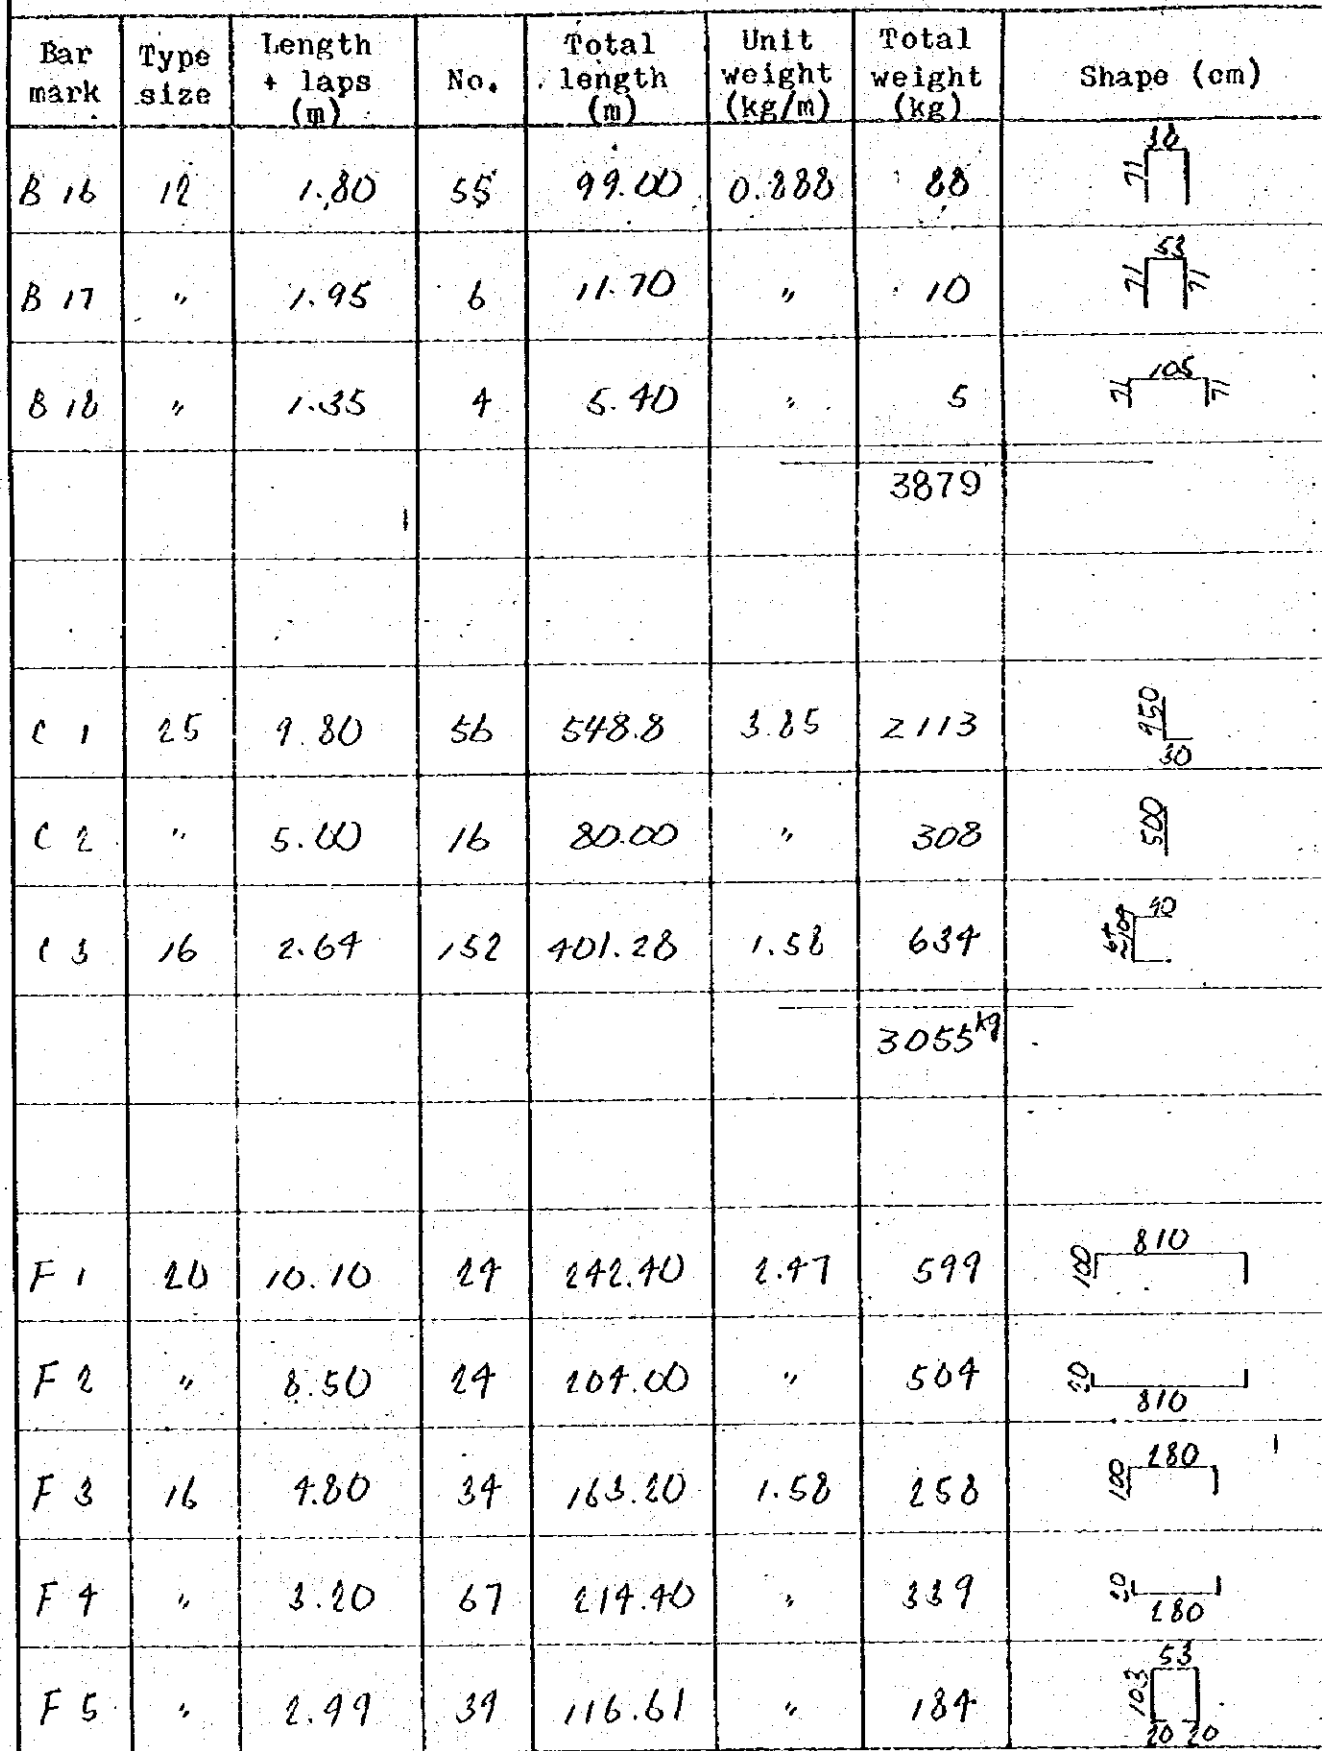 Bar mark Type size Length + laps (m) No. Total length (m) Unit weight (kg/m) Total weight (kg) Shape (cm)
B 16 12 1.80 55 99.00 0.888 88 38 71
B 17 " 1.95 6 11.70 " 10 71 53 71
B 18 " 1.35 4 5.40 " 5 71 105 71
3879
C 1 25 9.80 56 548.8 3.85 2113 950 30
C 2 " 5.00 16 80.00 " 308 500
C 3 16 2.64 152 401.28 1.58 634 40
3055 kg
F 1 20 10.10 24 242.40 2.47 599 100 810
F 2 " 8.50 24 204.00 " 504 20 810
F 3 16 4.80 34 163.20 1.58 258 100 280
F 4 " 3.20 67 214.40 " 339 20 280
F 5 " 2.99 39 116.61 " 184 53 103 20 20